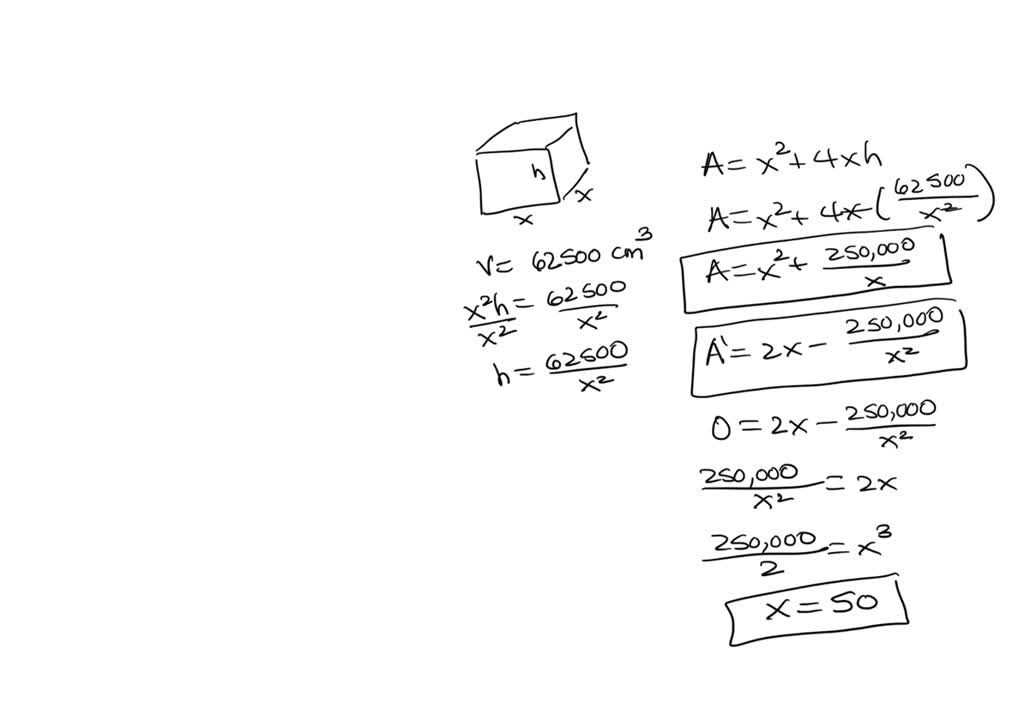 h
x
x
V = 62500 cm³
x²h/x² = 62500/x²
h = 62500/x²
A = x² + 4xh
A = x² + 4x (62500/x²)
A = x² + 250,000/x
A' = 2x − 250,000/x²
0 = 2x − 250,000/x²
250,000/x² = 2x
250,000/2 = x³
x = 50